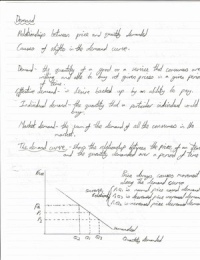 Demand
Relationships between price and quantity demanded
Causes of shifts in the demand curve.
Demand - the quantity of a good or a service that consumers are
willing and able to buy at given prices in a given period
of time.
Effective demand - is desire backed up by an ability to pay.
Individual demand - the quantity that a particular individual would
buy.
Market demand - the sum of the demand of all the consumers in the
market.
The demand curve - shows the relationship between the price of an item
and the quantity demanded over a period of time
Price
Price changes causes movement
along the demand curve
demand
Quantity demanded